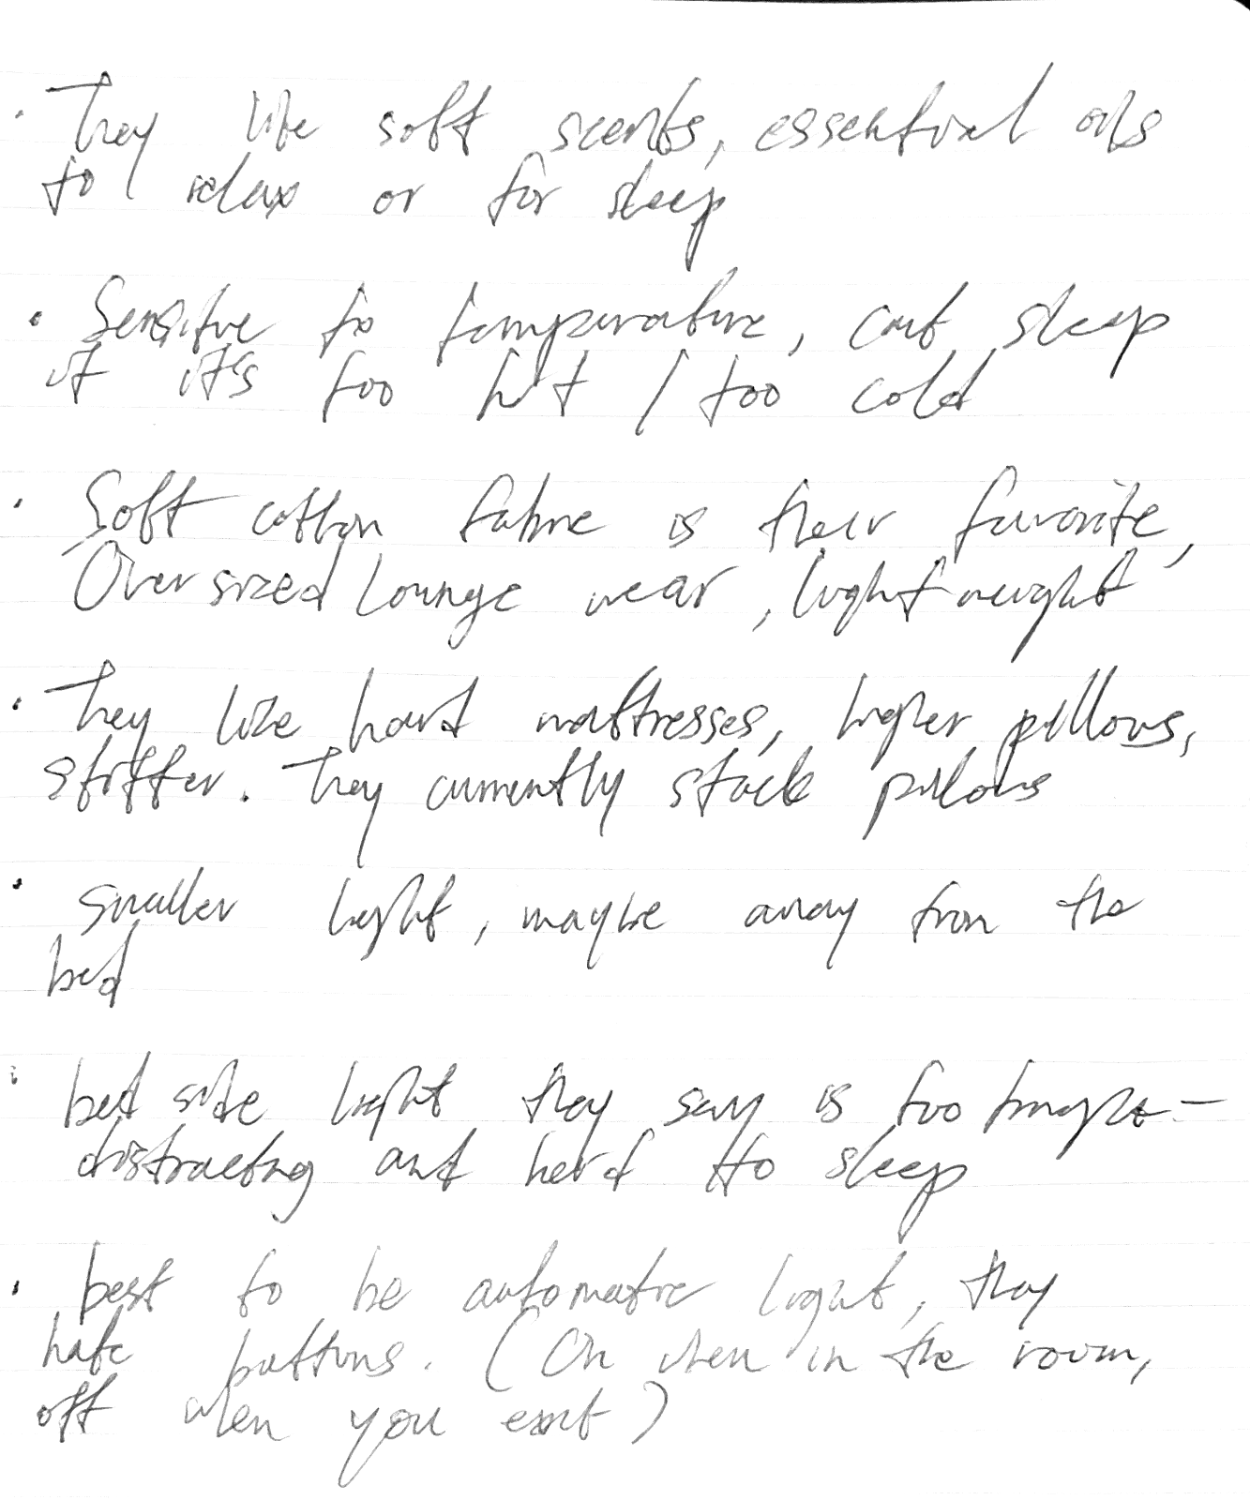 · They like soft scents, essential oils
to relax or for sleep
· Sensitive to temperature, cant sleep
if it's too hot / too cold
· Soft cotton fabric is their favorite,
Oversized Lounge wear, light weight
· They like hard mattresses, higher pillows,
stiffer. They currently stack pillows
· smaller light, maybe away from the
bed
· bed side light they say is too bright -
distracting and hard to sleep
· best to be automatic light, they
hate buttons. (On when in the room,
off when you exit)